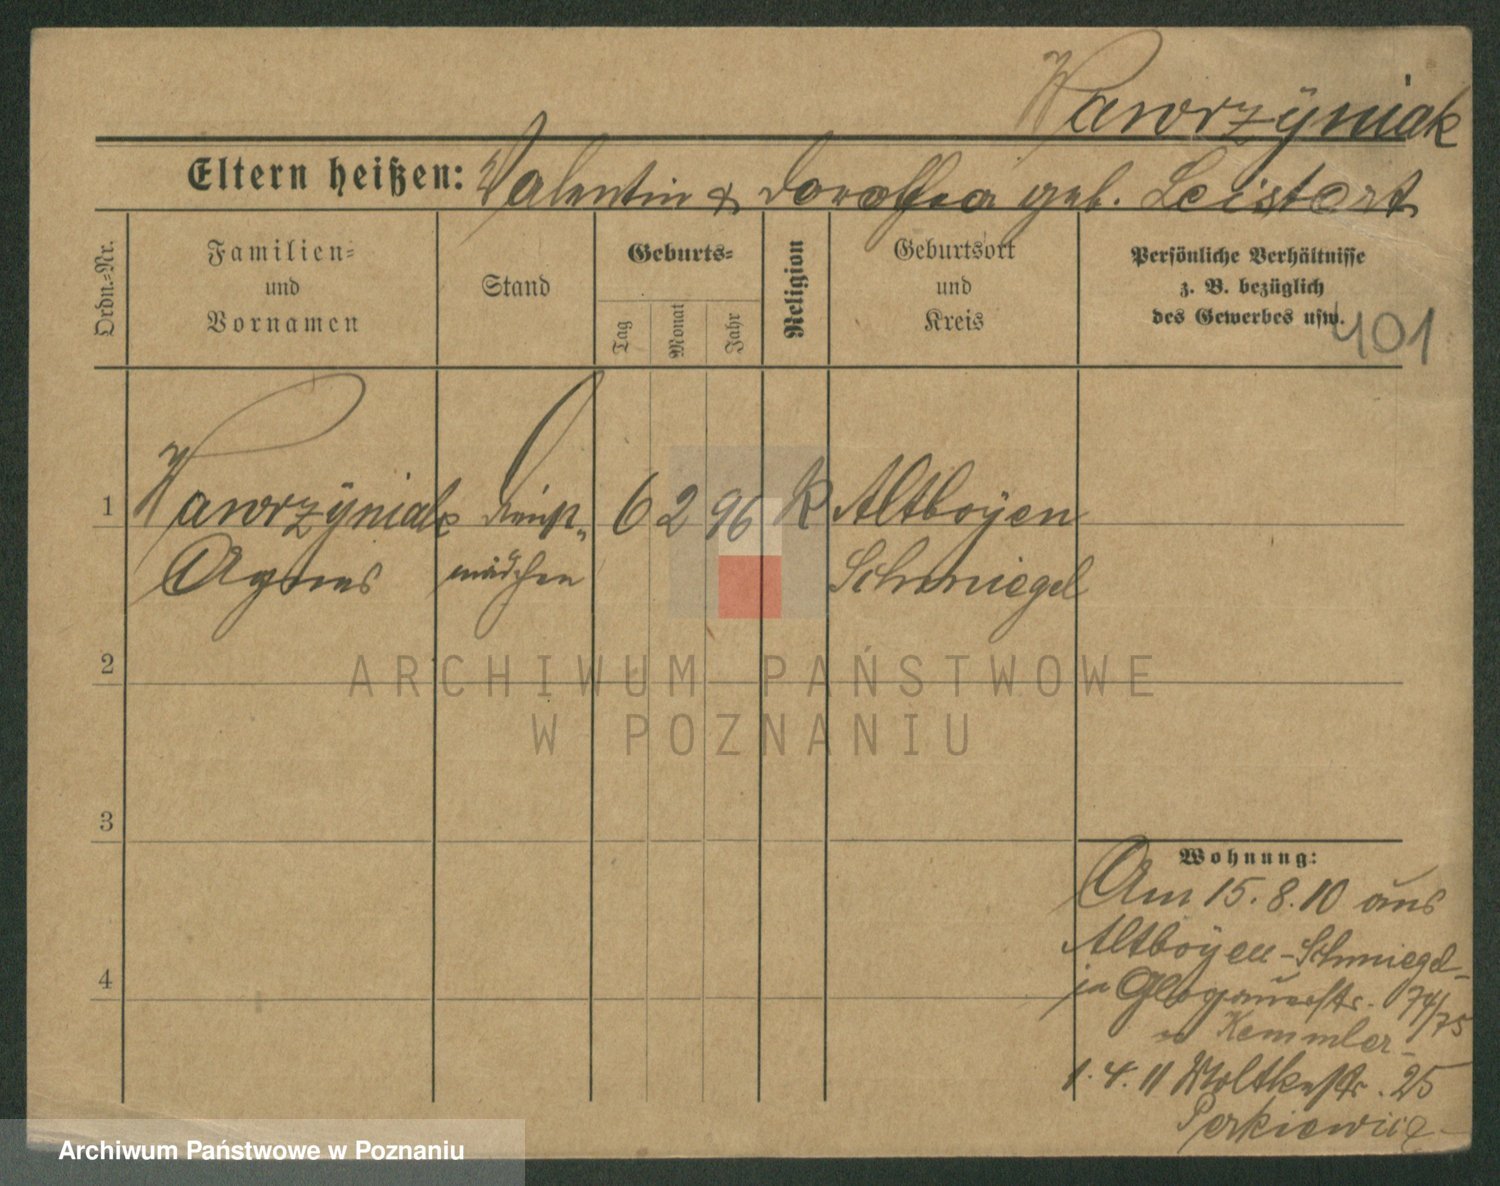 Wawrzyniak
Eltern heißen: Valentin & Dorothea geb. Leistert
Ordn.-Nr.
Familien-
und
Vornamen
Stand
Geburts-
Tag
Monat
Jahr
Religion
Geburtsort
und
Kreis
Persönliche Verhältnisse
z. B. bezüglich
des Gewerbes usw.
401
1 Wawrzyniak Dienst- 6 2 96 K Altboyen
Agnes mädchen Schmiegel
2
3
4
Wohnung:
Am 15.8.10 aus
Altboyen-Schmiegel-
in Glogauerstr. 74/75
Kemmler-
1.4.11 Moltkestr. 25
Perkiewicz-
ARCHIWUM PAŃSTWOWE
W POZNANIU
Archiwum Państwowe w Poznaniu